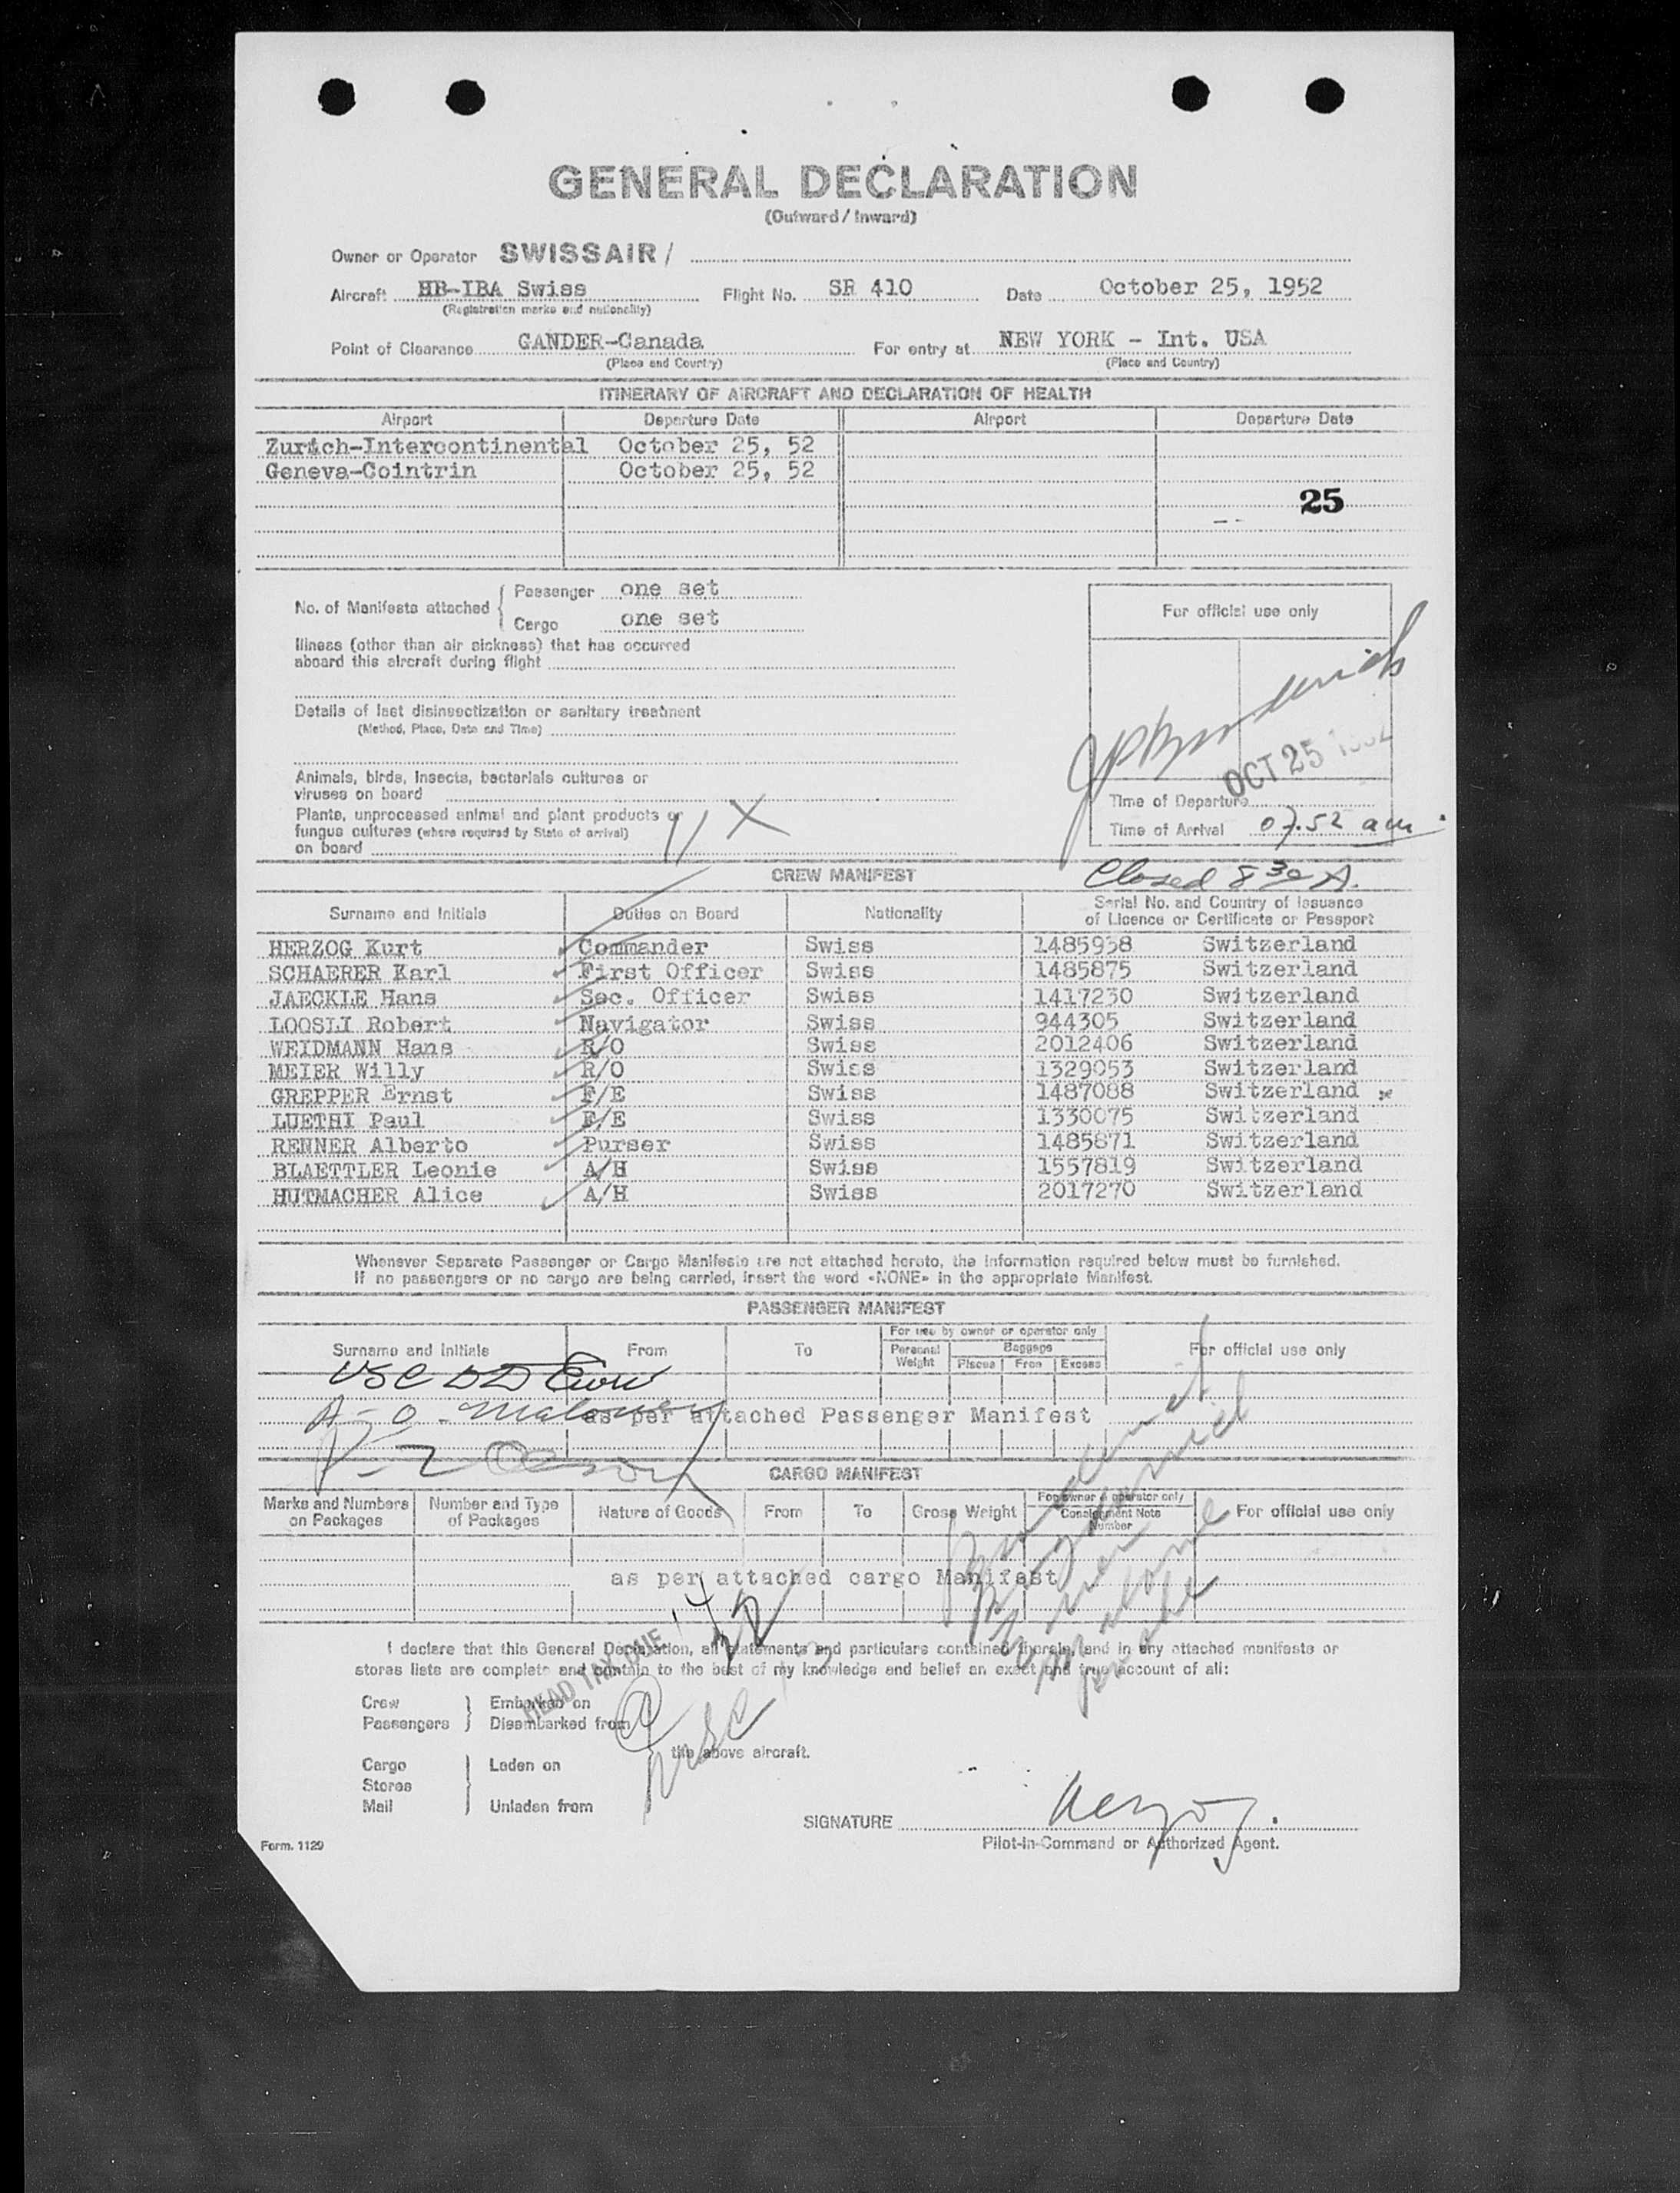 GENERAL DECLARATION
(Outward / Inward)
Owner or Operator SWISSAIR /
Aircraft HB-IBA Swiss Flight No. SR 410 Date October 25, 1952
(Registration marks and nationality)
Point of Clearance GANDER-Canada For entry at NEW YORK - Int. USA
(Place and Country) (Place and Country)
ITINERARY OF AIRCRAFT AND DECLARATION OF HEALTH
Airport Departure Date Airport Departure Date
Zurich-Intercontinental October 25, 52
Geneva-Cointrin October 25, 52
25
No. of Manifests attached Passenger one set
Cargo one set
For official use only
Illness (other than air sickness) that has occurred
aboard this aircraft during flight
Details of last disinsectization or sanitary treatment
(Method, Place, Date and Time)
OCT 25 1952
Animals, birds, insects, bacterials cultures or
viruses on board
Time of Departure
Plants, unprocessed animal and plant products or
fungus cultures (where required by State of arrival)
on board
Time of Arrival 07.52 am
CREW MANIFEST Closed 8 30 A.
Surname and Initials Duties on Board Nationality Serial No. and Country of Issuance
of Licence or Certificate or Passport
HERZOG Kurt Commander Swiss 1485938 Switzerland
SCHAERER Karl First Officer Swiss 1485875 Switzerland
JAECKLE Hans Sec. Officer Swiss 1417230 Switzerland
LOOSLI Robert Navigator Swiss 944305 Switzerland
WEIDMANN Hans R/O Swiss 2012406 Switzerland
MEIER Willy R/O Swiss 1329053 Switzerland
GREPPER Ernst F/E Swiss 1487088 Switzerland
LUETHI Paul F/E Swiss 1330075 Switzerland
RENNER Alberto Purser Swiss 1485871 Switzerland
BLAETTLER Leonie A/H Swiss 1557819 Switzerland
HUTMACHER Alice A/H Swiss 2017270 Switzerland
Whenever Separate Passenger or Cargo Manifests are not attached hereto, the information required below must be furnished.
If no passengers or no cargo are being carried, insert the word «NONE» in the appropriate Manifest.
PASSENGER MANIFEST
Surname and Initials From To For use by owner or operator only For official use only
Personal Weight Baggage
Pieces Free Excess
as per attached Passenger Manifest
CARGO MANIFEST
Marks and Numbers on Packages Number and Type of Packages Nature of Goods From To Gross Weight For owner & operator only Consignment Note Number For official use only
as per attached cargo Manifest
HEAD TAX DUE
I declare that this General Declaration, all statements and particulars contained therein, and in any attached manifests or
stores lists are complete and contain to the best of my knowledge and belief an exact and true account of all:
Crew Embarked on
Passengers Disembarked from
the above aircraft.
Cargo Laden on
Stores
Mail Unladen from
SIGNATURE Herzog.
Pilot-in-Command or Authorized Agent.
Form. 1129